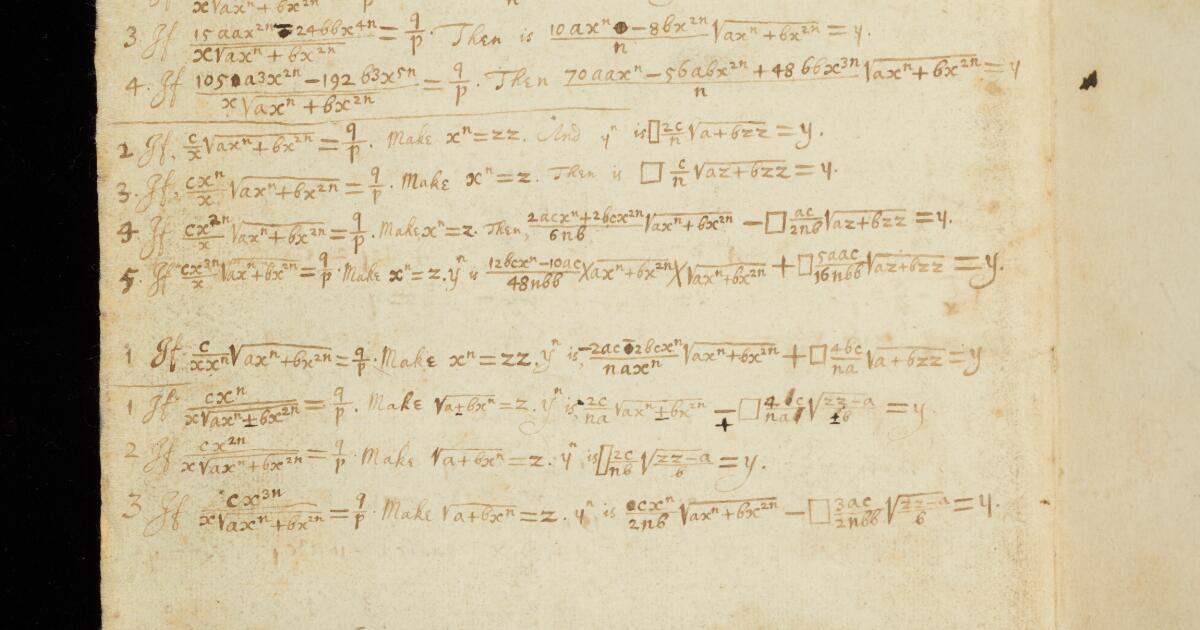 x√ax^n+bx^2n p n
3. If (15aax^2n − 24bbx^4n)/(x√ax^n+bx^2n) = q/p. Then is (10ax^n − 8bx^2n)/n √ax^n+bx^2n = y.
4. If (105a3x^2n − 192b3x^5n)/(x√ax^n+bx^2n) = q/p. Then (70aax^n − 56abx^2n + 48bbx^3n)/n √ax^n+bx^2n = y
2 If, c/x √ax^n+bx^2n = q/p. Make x^n = zz. And y^n is □ 2c/n √a+bzz = y.
3. If, cx^n/x √ax^n+bx^2n = q/p. Make x^n = z. Then is □ c/n √az+bzz = y.
4 If cx^2n/x √ax^n+bx^2n = q/p. Make x^n = z. Then, (2acx^n+2bcx^2n)/6nb √ax^n+bx^2n − □ ac/2nb √az+bzz = y.
5. If cx^3n/x √ax^n+bx^2n = q/p. Make x^n = z. y^n is (12bcx^n−10ac)/48nbb × ax^n+bx^2n × √ax^n+bx^2n + □ 5aac/16nbb √az+bzz = y.
1 If c/xx^n √ax^n+bx^2n = q/p. Make x^n = zz. y^n is, (−2ac−2bcx^n)/nax^n √ax^n+bx^2n + □ 4bc/na √a+bzz = y
1 If cx^n/(x√ax^n±bx^2n) = q/p. Make √a±bx^n = z. y^n is, 2c/na √ax^n±bx^2n ∓ □ 4bc/na √(zz−a)/±b = y.
2 If cx^2n/(x√ax^n+bx^2n) = q/p. Make √a+bx^n = z. y^n is □ 2c/nb √(zz−a)/b = y.
3 If cx^3n/(x√ax^n+bx^2n) = q/p. Make √a+bx^n = z. y^n is cx^n/2nb √ax^n+bx^2n − □ 3ac/2nbb √(zz−a)/b = y.